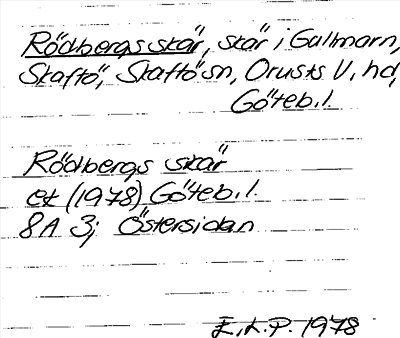 Rödbergsskär, skär i Gullmarn,
Skaftö, Skaftö sn, Orusts V. hd,
Göteb. l.
Rödbergs skär
ek (1978) Göteb. l.
8A 3; Östersidan
E.L.P. 1978